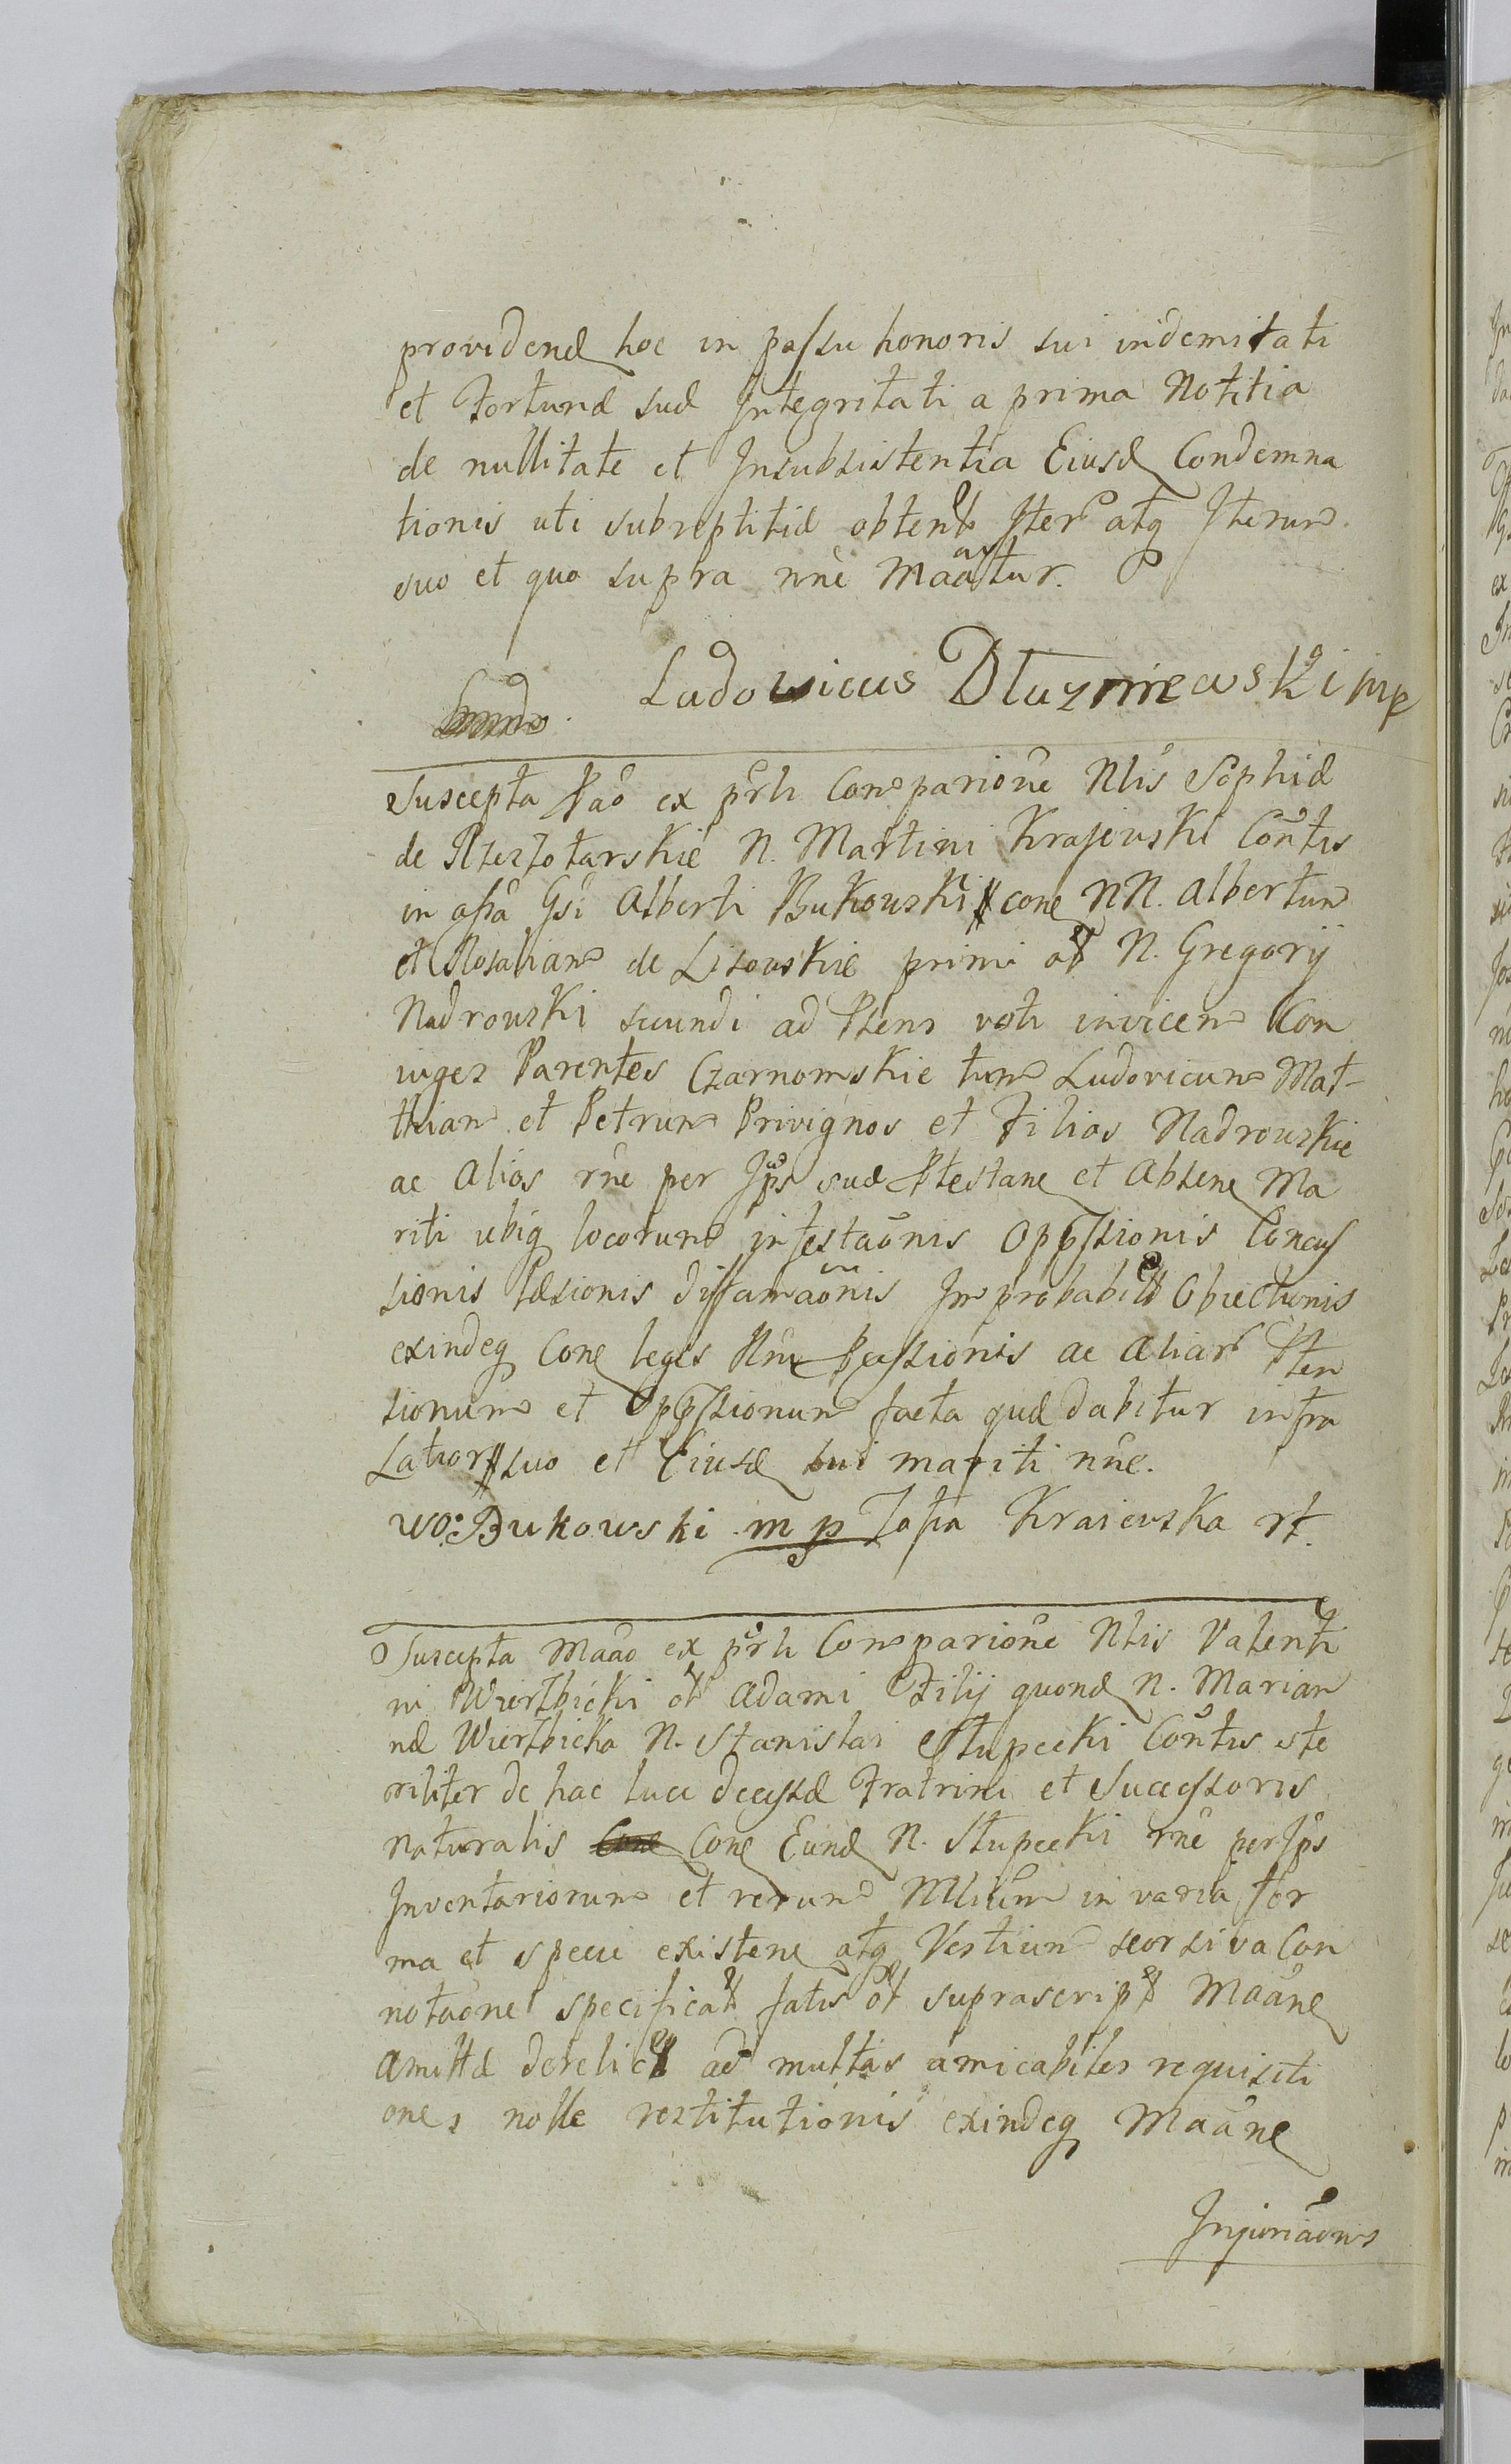 providend hoc in passu honoris sui indemitati
et Fortunæ suæ Integritati a prima Notitia
de nullitate et Insubsistentia Eiusd Condemna
tionis uti subreptitiæ obtent Iter atq Iterum
suo et quo supra nñe Maatur.
Ludowicus Dłuzniewski mp
Suscepta Pao ex psrli Comparione Nlis Sophiæ
de Rzeszotarskie N. Martini Krajewski Contis
in assa Gsi Alberti Bukowski cone NN. Albertum
et Rosaliam de Lisowskie primi ot N. Gregorij
Nadrowski secundi ad Psens voti invicem Con
iuges Parentes Czarnomskie tum Ludovicum Mat-
thiam et Petrum Privignos et Filios Nadrowskie
ac Alios rne per Ips suæ Ptestane et Absene Ma
riti ubiq locorum infestaonis Oppssionis Concus
sionis Læsionis diffamaonis Improbabil Obiectionis
exindeq Cone leges Pcussionis ac Aliar Pten
sionum et Oppssionum facta quæ dabitur infra
Latior suo et Eiusd sui mariti nñe.
WO: Bukowski mp Zofia Kraiewska rt.
Suscepta Maao ex psrli Comparione Nlis Valenti
ni Wierzbicki ot Adami Filij quond N. Marian
næ Wierzbicka N. Stanislai Słupecki Contis ste
riliter de hac luce decessæ Fratrini et Successoris
naturalis Cone Eund N. Słupecki rne per Ips
Inventariorum et rerum Mlium in varia for
ma et specie existene atq Vestium seorsiva Con
notaone specificat fatis ot suprascript Maane
Amittæ derelict ad multas amicabiles requisiti
ones nolle restitutionis exindeq Maane
Injuriaonis